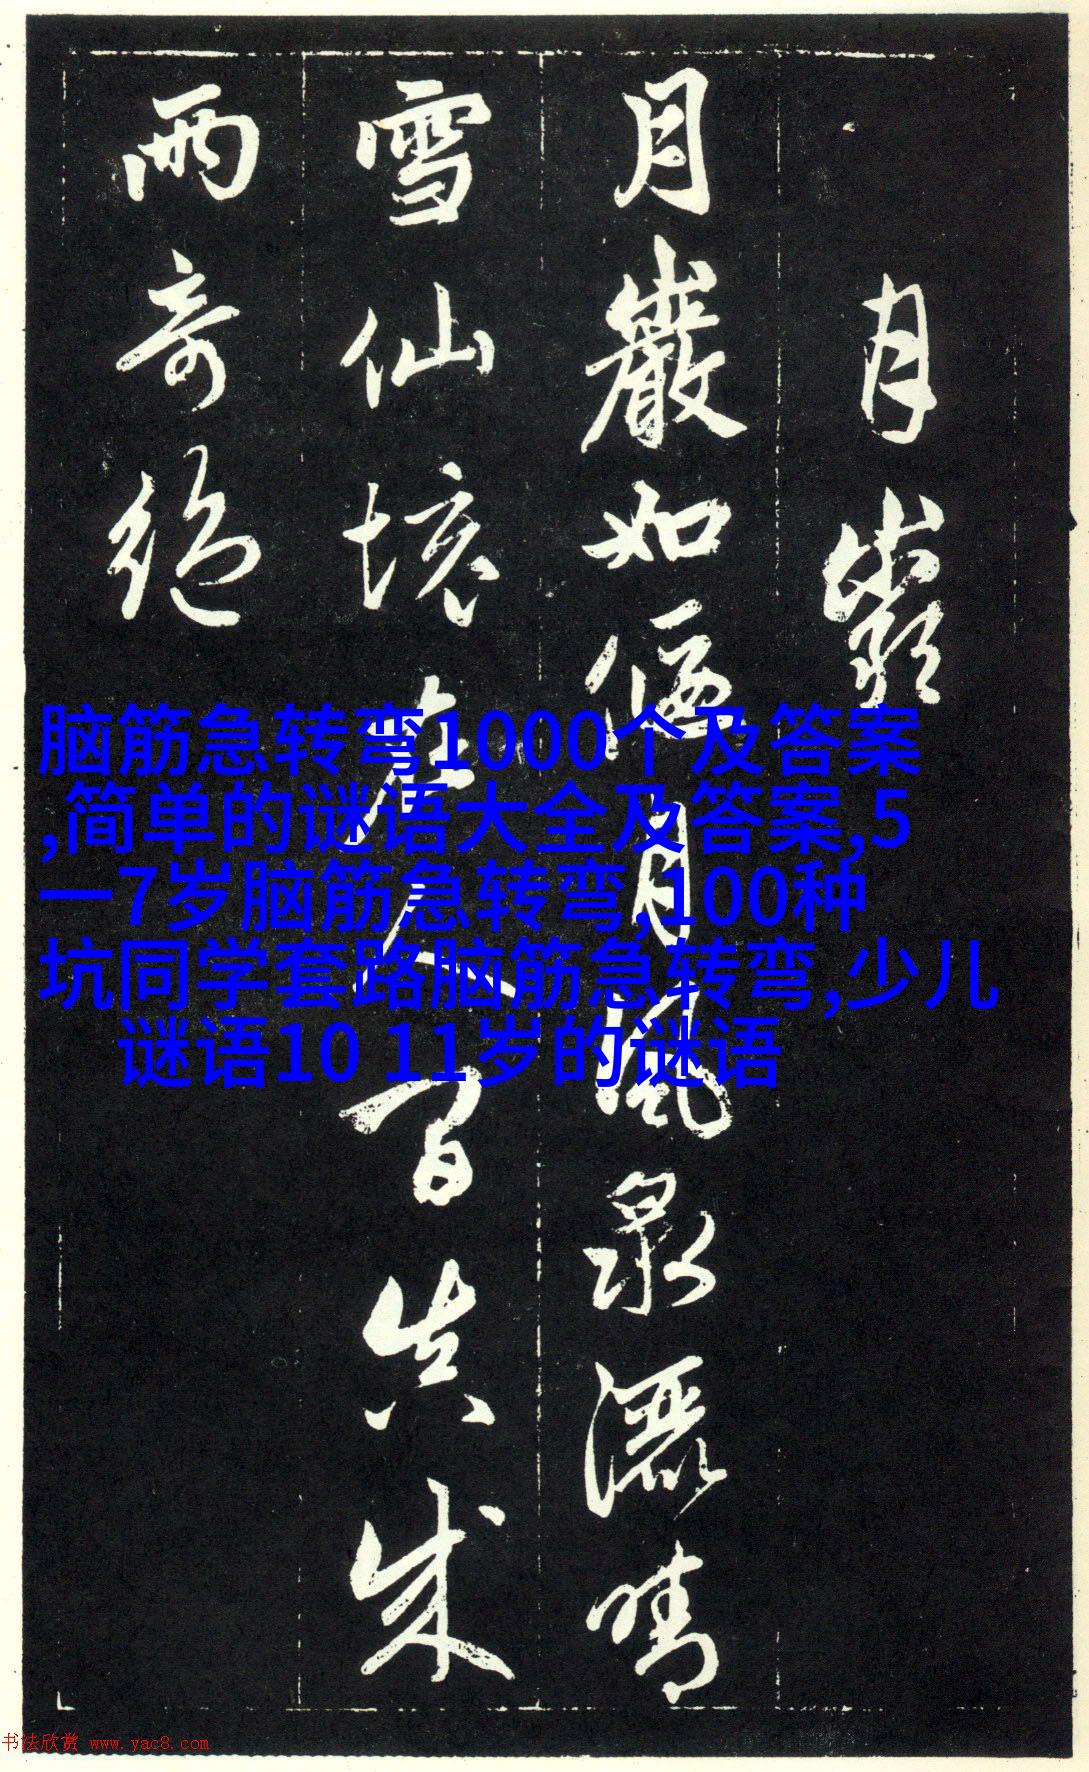 月巖
月巖如偃月風泉灑晴
雪仙境在人間真成
兩奇絕
脑筋急转弯1000个及答案
,简单的谜语大全及答案,5
一7岁脑筋急转弯,100种
坑同学套路脑筋急转弯,少儿
谜语10 11岁的谜语
书法欣赏 www.yac8.com